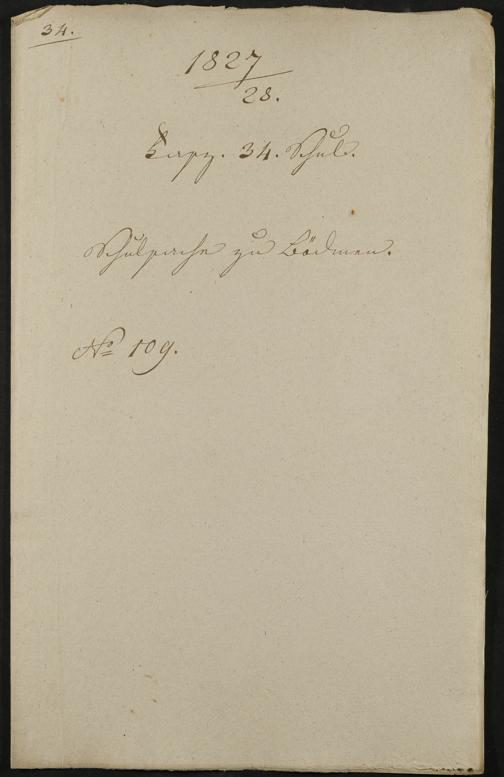 34.
1827
28.
Kapz. 34. Schul.
Schulsache zu Bödmen.
No 109.